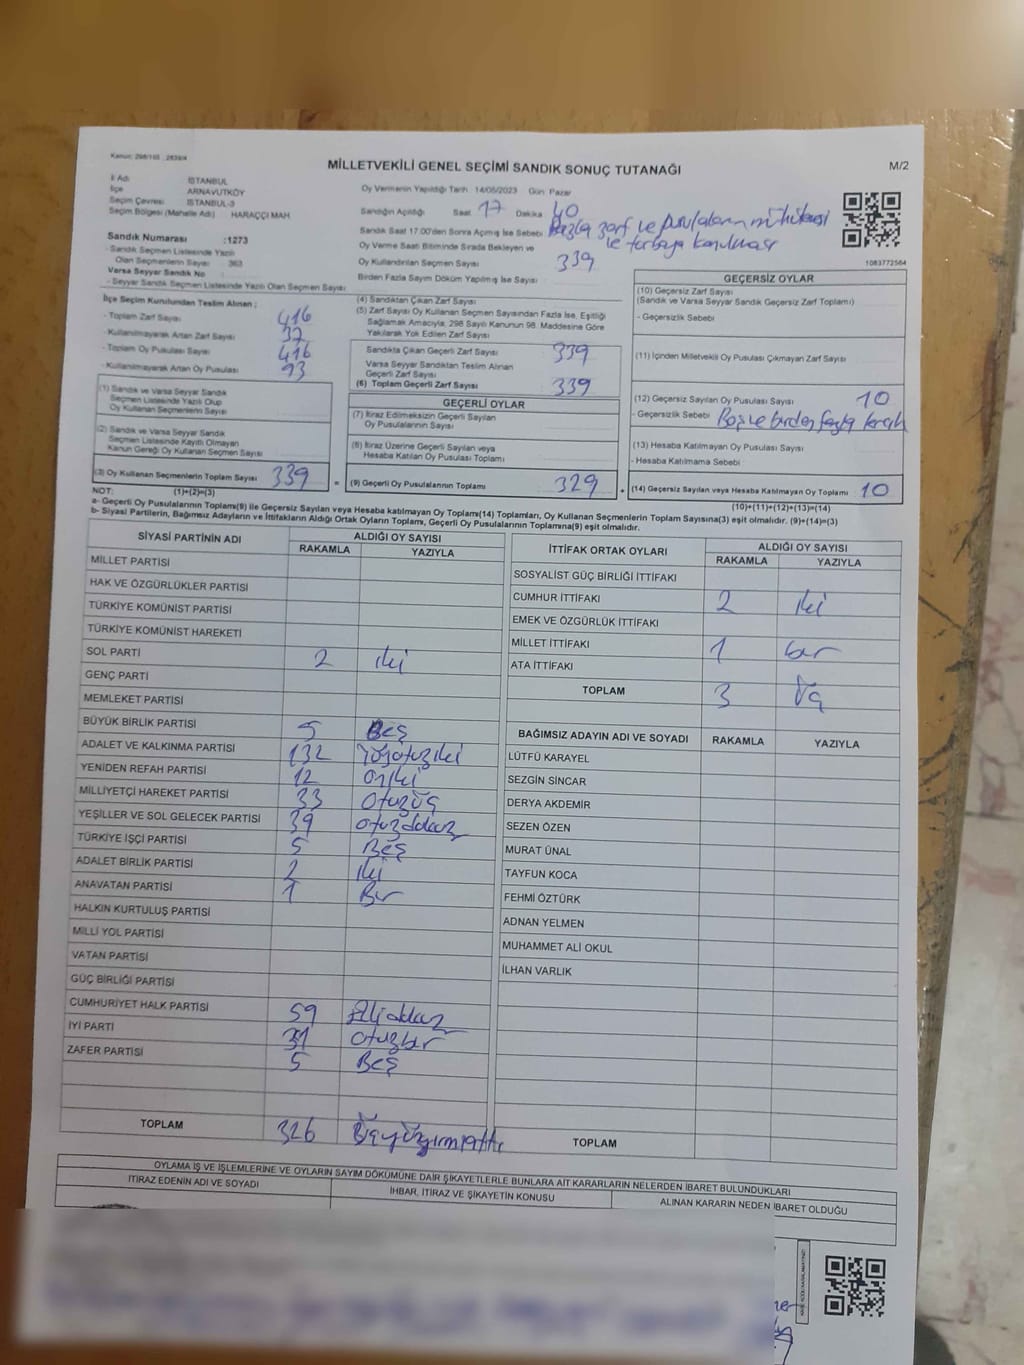 Kanun: 298/105 , 2839/4
MİLLETVEKİLİ GENEL SEÇİMİ SANDIK SONUÇ TUTANAĞI
M/2
İl Adı İSTANBUL
İlçe ARNAVUTKÖY
Seçim Çevresi İSTANBUL-3
Seçim Bölgesi (Mahalle Adı) HARAÇÇI MAH.
Sandık Numarası :1273
- Sandık Seçmen Listesinde Yazılı
Olan Seçmenlerin Sayısı 363
Varsa Seyyar Sandık No
- Seyyar Sandık Seçmen Listesinde Yazılı Olan Seçmen Sayısı
Oy Vermenin Yapıldığı Tarih 14/05/2023 Gün Pazar
Sandığın Açıldığı Saat 17 Dakika 40
Sandık Saat 17.00'den Sonra Açımış İse Sebebi Fazla zarf ve pusulaların mühürlenmesi
ve torbaya konulması
Oy Verme Saati Bitiminde Sırada Bekleyen ve
Oy Kullandırılan Seçmen Sayısı 339
Birden Fazla Sayım Döküm Yapılmış İse Sayısı
1083772564
İlçe Seçim Kurulundan Teslim Alınan ;
- Toplam Zarf Sayısı 416
- Kullanılmayarak Artan Zarf Sayısı
- Toplam Oy Pusulası Sayısı 416
- Kullanılmayarak Artan Oy Pusulası 93
(1) Sandık ve Varsa Seyyar Sandık
Seçmen Listesinde Yazılı Olup
Oy Kullanan Seçmenlerin Sayısı
(2) Sandık ve Varsa Seyyar Sandık
Seçmen Listesinde Kayıtlı Olmayan
Kanun Gereği Oy Kullanan Seçmen Sayısı
(3) Oy Kullanan Seçmenlerin Toplam Sayısı 339 =
(1)+(2)=(3)
(4) Sandıktan Çıkan Zarf Sayısı
(5) Zarf Sayısı Oy Kullanan Seçmen Sayısından Fazla İse, Eşitliği
Sağlamak Amacıyla, 298 Sayılı Kanunun 98. Maddesine Göre
Yakılarak Yok Edilen Zarf Sayısı
Sandıkta Çıkan Geçerli Zarf Sayısı 339
Varsa Seyyar Sandıktan Teslim Alınan
Geçerli Zarf Sayısı
(6) Toplam Geçerli Zarf Sayısı 339
GEÇERLİ OYLAR
(7) İtiraz Edilmeksizin Geçerli Sayılan
Oy Pusulalarının Sayısı
(8) İtiraz Üzerine Geçerli Sayılan veya
Hesaba Katılan Oy Pusulası Toplamı
(9) Geçerli Oy Pusulalarının Toplamı 329 +
GEÇERSİZ OYLAR
(10) Geçersiz Zarf Sayısı
(Sandık ve Varsa Seyyar Sandık Geçersiz Zarf Toplamı)
- Geçersizlik Sebebi
(11) İçinden Milletvekili Oy Pusulası Çıkmayan Zarf Sayısı
(12) Geçersiz Sayılan Oy Pusulası Sayısı 10
- Geçersizlik Sebebi Boş ve birden fazla
(13) Hesaba Katılmayan Oy Pusulası Sayısı
- Hesaba Katılmama Sebebi
(14) Geçersiz Sayılan veya Hesaba Katılmayan Oy Toplamı 10
(10)+(11)+(12)+(13)=(14)
NOT:
a- Geçerli Oy Pusulalarının Toplamı(9) ile Geçersiz Sayılan veya Hesaba Katılmayan Oy Toplam(14) Toplamları, Oy Kullanan Seçmenlerin Toplam Sayısına(3) eşit olmalıdır. (9)+(14)=(3)
b- Siyasi Partilerin, Bağımsız Adayların ve İttifakların Aldığı Ortak Oyların Toplamı, Geçerli Oy Pusulalarının Toplamına(9) eşit olmalıdır.
SİYASİ PARTİNİN ADI ALDIĞI OY SAYISI
RAKAMLA YAZIYLA
MİLLET PARTİSİ
HAK VE ÖZGÜRLÜKLER PARTİSİ
TÜRKİYE KOMÜNİST PARTİSİ
TÜRKİYE KOMÜNİST HAREKETİ
SOL PARTİ 2 iki
GENÇ PARTİ
MEMLEKET PARTİSİ
BÜYÜK BİRLİK PARTİSİ 5 Beş
ADALET VE KALKINMA PARTİSİ 132 Yüzotuziki
YENİDEN REFAH PARTİSİ 12 oniki
MİLLİYETÇİ HAREKET PARTİSİ 33 otuzüç
YEŞİLLER VE SOL GELECEK PARTİSİ 39 otuzdokuz
TÜRKİYE İŞÇİ PARTİSİ 5 Beş
ADALET BİRLİK PARTİSİ 2 iki
ANAVATAN PARTİSİ 1 Bir
HALKIN KURTULUŞ PARTİSİ
MİLLİ YOL PARTİSİ
VATAN PARTİSİ
GÜÇ BİRLİĞİ PARTİSİ
CUMHURİYET HALK PARTİSİ 59 Ellidokuz
İYİ PARTİ 31 otuzbir
ZAFER PARTİSİ 5 Beş
TOPLAM 326 Üçyüzyirmialtı
İTTİFAK ORTAK OYLARI ALDIĞI OY SAYISI
RAKAMLA YAZIYLA
SOSYALİST GÜÇ BİRLİĞİ İTTİFAKI
CUMHUR İTTİFAKI 2 iki
EMEK VE ÖZGÜRLÜK İTTİFAKI
MİLLET İTTİFAKI 1 bir
ATA İTTİFAKI
TOPLAM 3 Üç
BAĞIMSIZ ADAYIN ADI VE SOYADI RAKAMLA YAZIYLA
LÜTFÜ KARAYEL
SEZGİN SİNCAR
DERYA AKDEMİR
SEZEN ÖZEN
MURAT ÜNAL
TAYFUN KOCA
FEHMİ ÖZTÜRK
ADNAN YELMEN
MUHAMMET ALİ OKUL
İLHAN VARLIK
TOPLAM
OYLAMA İŞ VE İŞLEMLERİNE VE OYLARIN SAYIM DÖKÜMÜNE DAİR ŞİKAYETLERLE BUNLARA AİT KARARLARIN NELERDEN İBARET BULUNDUKLARI
İTİRAZ EDENİN ADI VE SOYADI İHBAR, İTİRAZ VE ŞİKAYETİN KONUSU ALINAN KARARIN NEDEN İBARET OLDUĞU